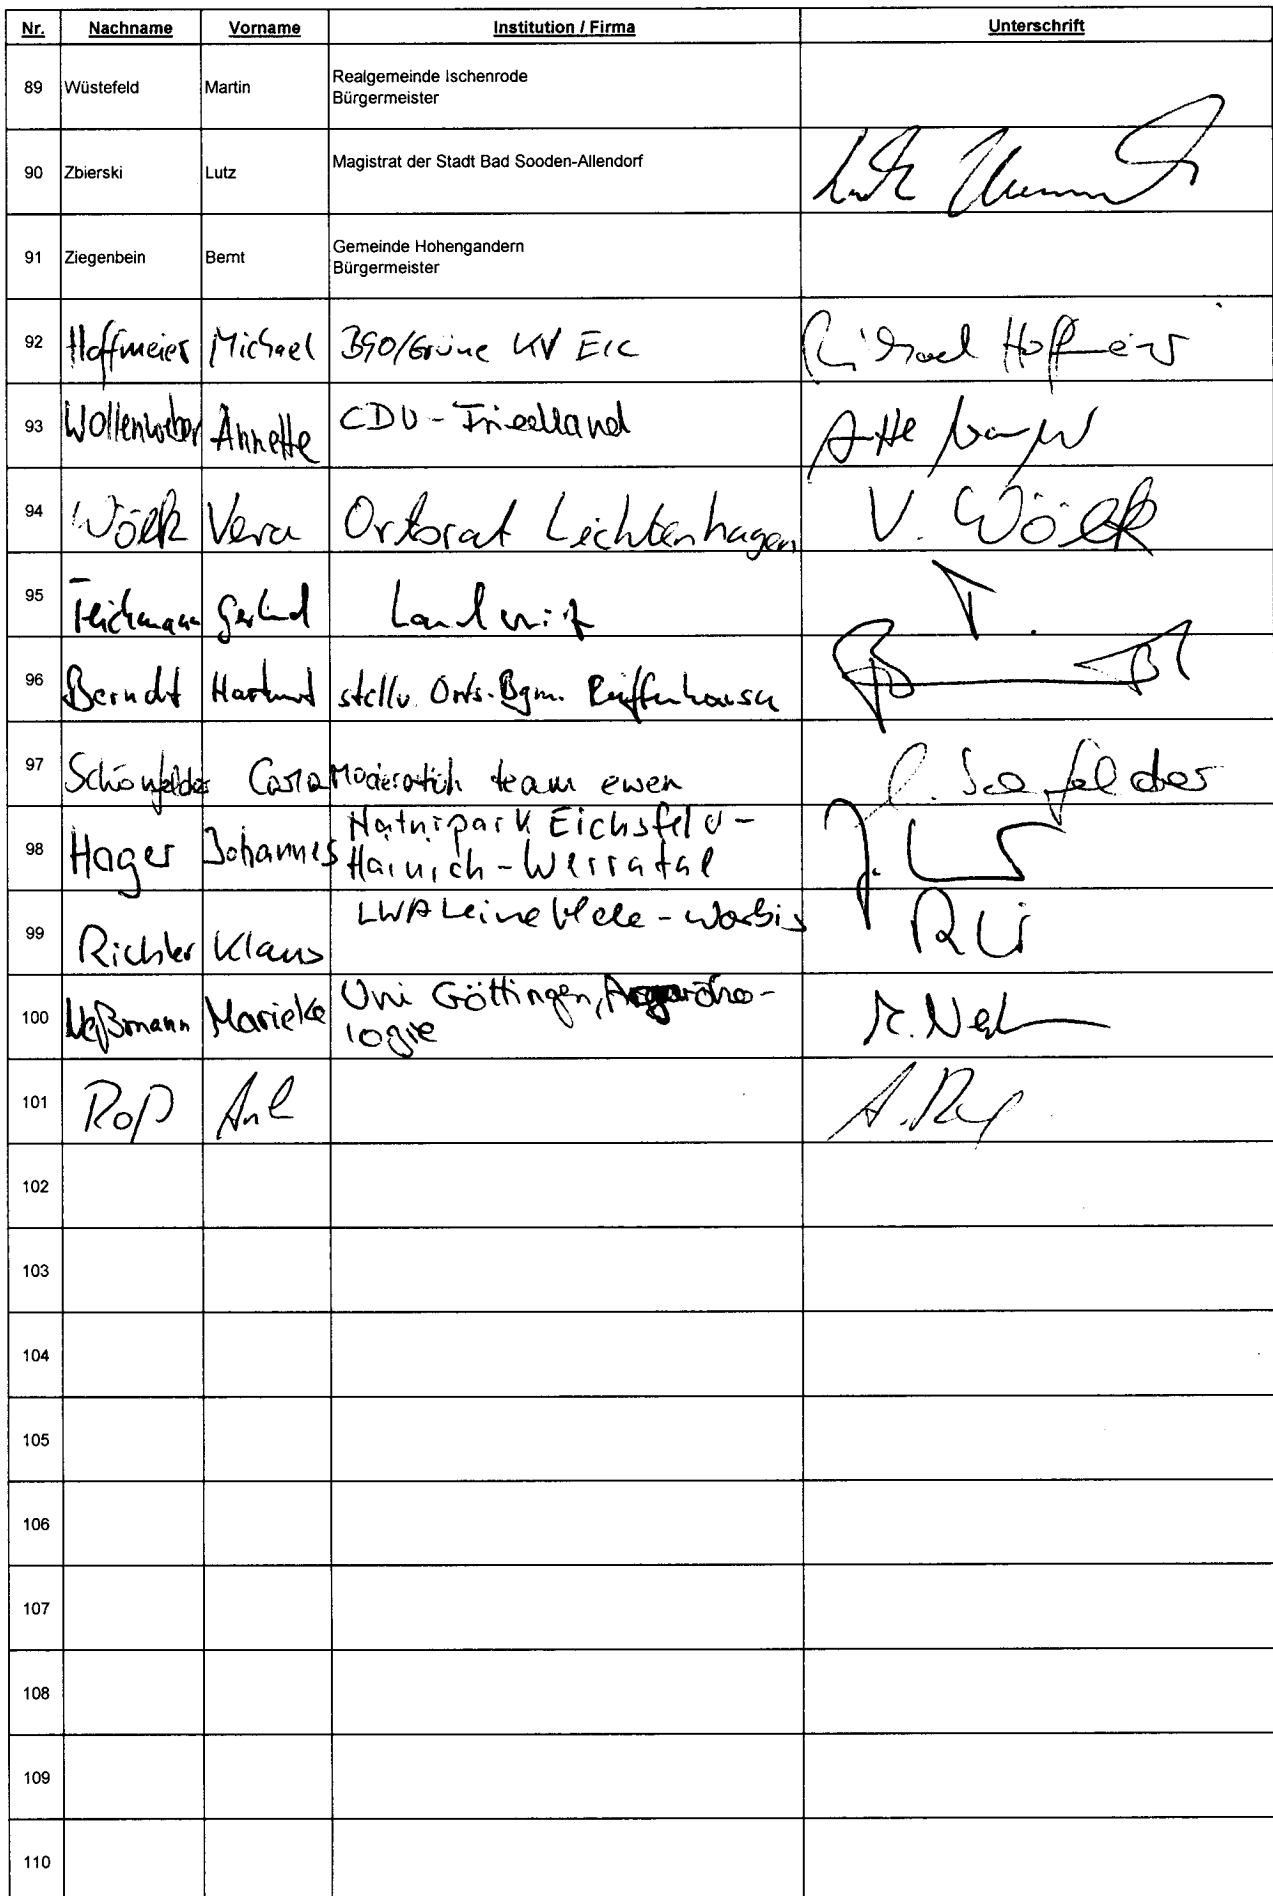 Nr. Nachname Vorname Institution / Firma Unterschrift
89 Wüstefeld Martin Realgemeinde Ischenrode
Bürgermeister
90 Zbierski Lutz Magistrat der Stadt Bad Sooden-Allendorf
91 Ziegenbein Bernt Gemeinde Hohengandern
Bürgermeister
92 Hoffmeier Michael B90/Grüne KV EIC Michael Hoffmeier
93 Wollenweber Annette CDU-Friedland
94 Wölk Vera Ortsrat Lichtenhagen V. Wölk
95 Teichmann Gerlind Landwirt T.
96 Berndt Hartmut stellv. Orts-Bgm.
97 Schönfelder Carla Moderation team ewen
98 Hager Johannes Naturpark Eichsfeld-
Hainich-Werratal
99 Richter Klaus LWA Leinefelde-Worbis
100 Marieke Uni Göttingen,
logie
101
102
103
104
105
106
107
108
109
110